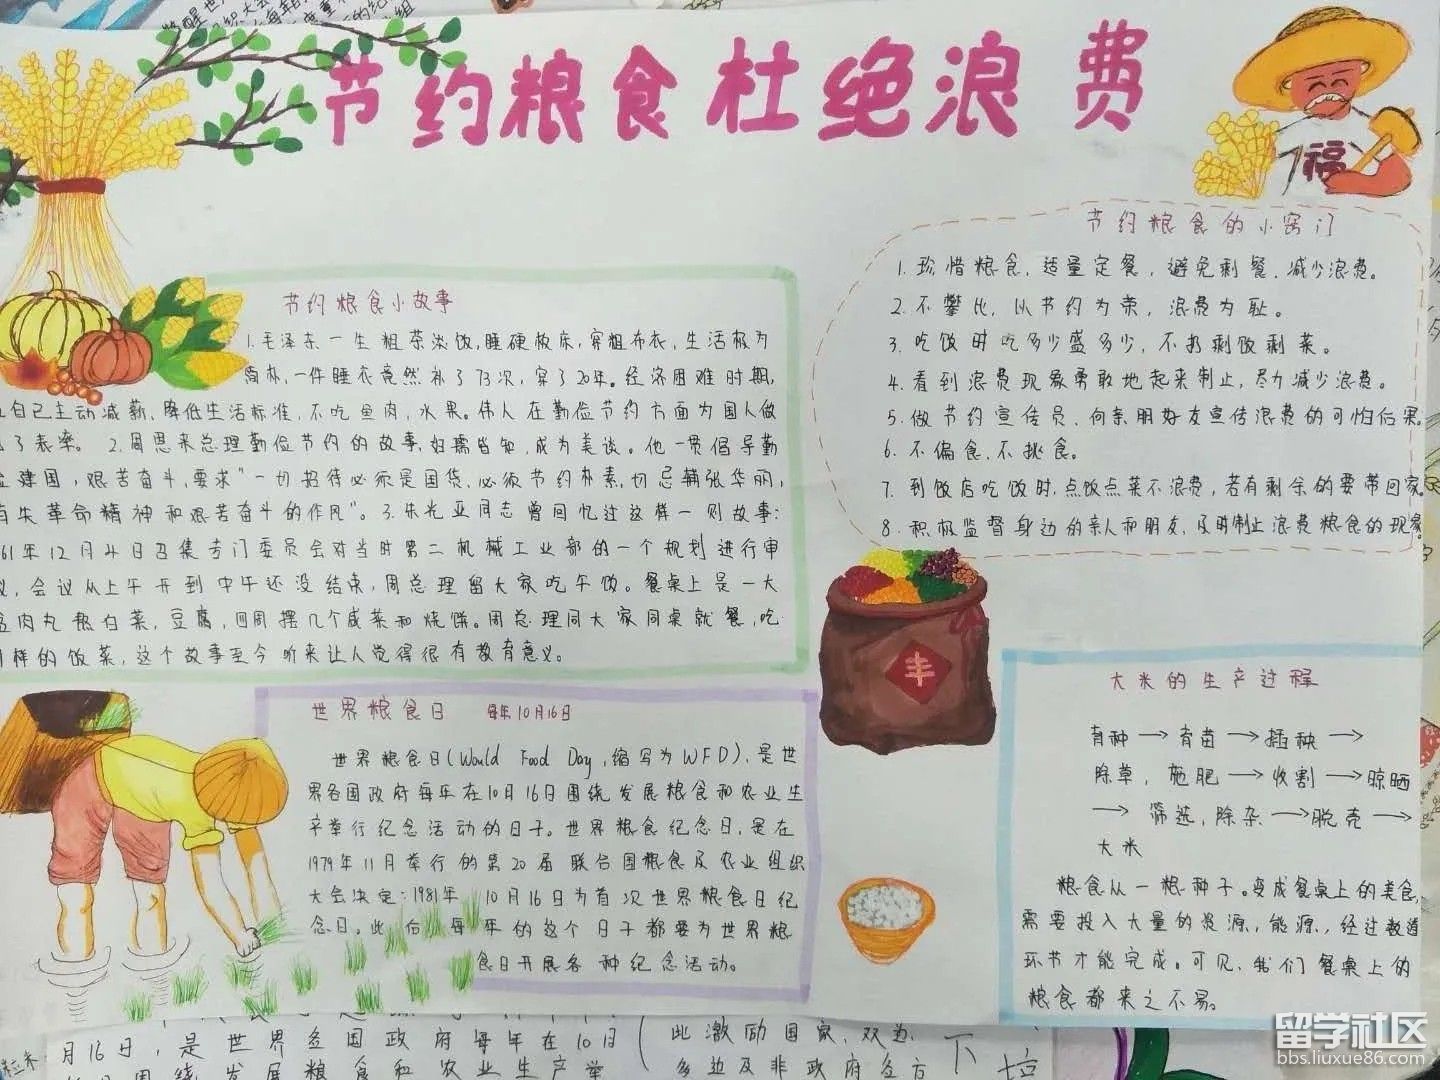 节约粮食杜绝浪费
福
节约粮食的小窍门
1. 珍惜粮食,适量定餐,避免剩餐,减少浪费。
2. 不攀比,以节约为荣,浪费为耻。
3. 吃饭时吃多少盛多少,不扔剩饭剩菜。
4. 看到浪费现象勇敢地起来制止,尽力减少浪费。
5. 做节约宣传员,向亲朋好友宣传浪费的可怕后果。
6. 不偏食、不挑食。
7. 到饭店吃饭时,点饭点菜不浪费,若有剩余的要带回家。
8. 积极监督身边的亲人和朋友,及时制止浪费粮食的现象。
节约粮食小故事
1.毛泽东一生粗茶淡饭,睡硬板床,穿粗布衣,生活极为
简朴,一件睡衣竟然补了73次,穿了20年。经济困难时期,
自己主动减薪、降低生活标准,不吃鱼肉,水果。伟人在勤俭节约方面为国人做
了表率。 2.周恩来总理勤俭节约的故事,妇孺皆知,成为美谈。他一贯倡导勤
建国,艰苦奋斗,要求"一切招待必须是国货,必须节约朴素,切忌铺张华丽,
有失革命精神和艰苦奋斗的作风"。3.朱光亚同志曾回忆过这样一则故事:
61年12月4日召集专门委员会对当时第二机械工业部的一个规划进行审
议,会议从上午开到中午还没结束,周总理留大家吃午饭。餐桌上是一大
盆肉丸熬白菜,豆腐,四周摆几个咸菜和烧饼。周总理同大家同桌就餐,吃
同样的饭菜,这个故事至今听来让人觉得很有教育意义。
丰
世界粮食日 每年10月16日
世界粮食日(Would Food Day,缩写为WFD),是世
界各国政府每年在10月16日围绕发展粮食和农业生
产举行纪念活动的日子。世界粮食纪念日,是在
1979年11月举行的第20届联合国粮食及农业组织
大会决定:1981年 10月16日为首次世界粮食日纪
念日。此后每年的这个日子都要为世界粮
食日开展各种纪念活动。
大米的生产过程
育种→育苗→插秧→
除草,施肥→收割→晾晒
→筛选,除杂→脱壳→
大米
粮食从一粮种子,变成餐桌上的美食,
需要投入大量的资源,能源,经过数道
环节才能完成。可见,我们餐桌上的
粮食都来之不易。
月16日,是世界各国政府每年在10月
围绕发展粮食和农业生产举
此激励国家,双边,
多边及非政府各方
留学社区
bbs.liuxue86.com